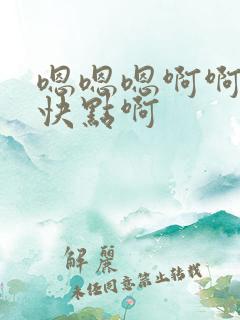 嗯嗯嗯啊啊
快點啊
解麗
未任同意禁止转载